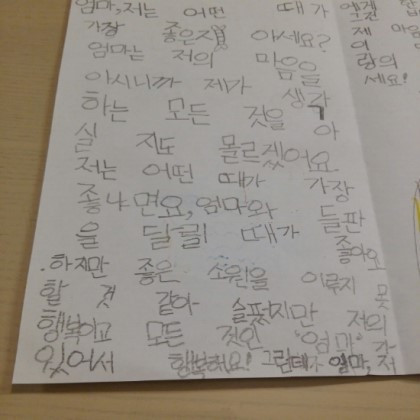 엄마,저는 어떤 때가
가장 좋은지 아세요?
엄마는 저의 마음을
아시니까 제가 생각
하는 모든 것을 아
실 지도 몰르겠어요
저는 어떤 때가 가장
좋냐면요,엄마와 들판
을 달릴 때가 좋아요
.하지만 좋은 소원을 이루지 못
할 것 같아 슬펐지만 저의
행복이고 모든 것인 "엄마"가
있어서 행복해요! 그런데 엄마, 저
에겐
제
의
세요!